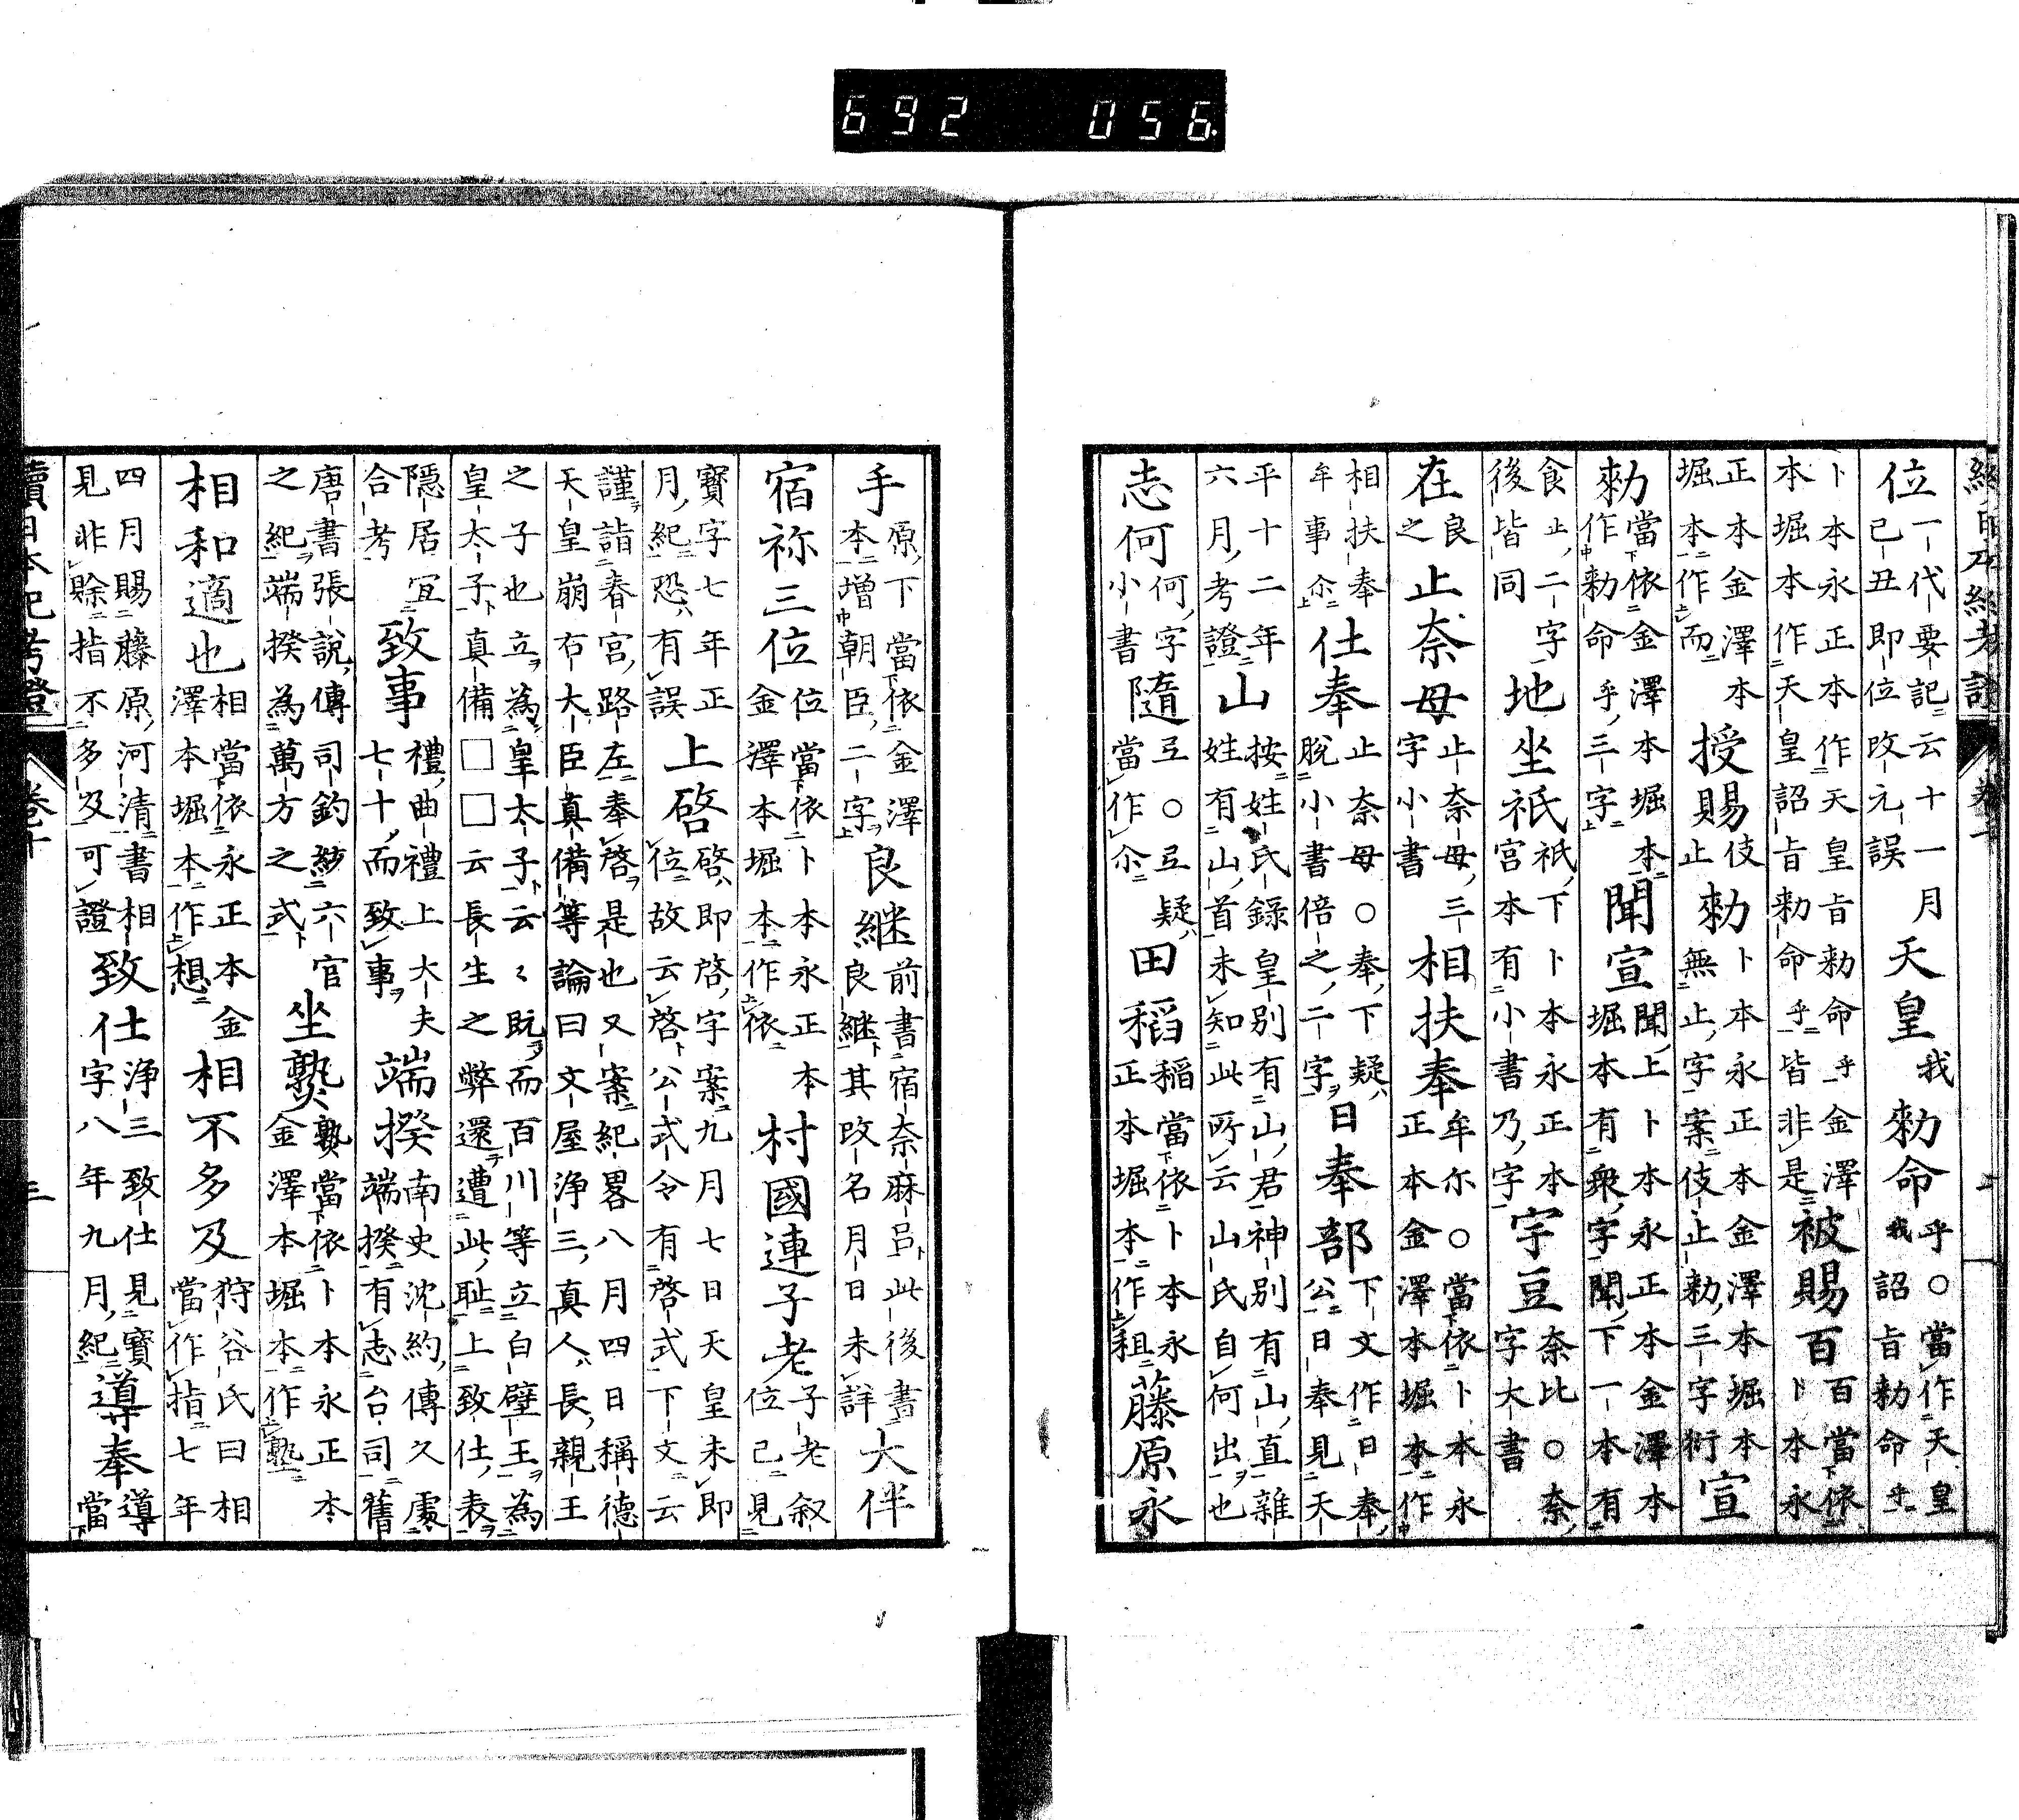 692 056
位一代要記云十一月己丑即位改元誤天皇我勅命乎○當作天皇我詔旨勅命乎
卜本永正本作天皇旨勅命乎金澤本堀本作天皇詔旨勅命乎皆非是被賜百百當依卜本永
正本金澤本堀本作而授賜伎止勅卜本永正本金澤本堀本無止字案伎止勅三字衍宣
勅當依金澤本堀本作勅命乎三字聞宣聞上卜本永正本金澤本堀本有衆字聞下一本有
食止二字後皆同地坐祇祇下卜本永正本宮本有小書乃字宇豆奈比○奈字大書
在良之止奈母止奈母三字小書相扶奉牟尓○當依卜本永正本金澤本堀本作
相扶奉牟事尒仕奉止奈母○奉下疑脱小書倍之二字日奉部下文作日奉公日奉見天
平十二年六月考證山按姓氏録皇別有山君神別有山直雜姓有山首未知此所云山氏自何出也
志何何字小書隨㢧○㢧疑當作尒田稻稻當依卜本永正本堀本作租藤原永
手原下當依金澤本増朝臣二字良継前書宿奈麻呂此後書良継其改名月日未詳大伴
宿祢三位位當依卜本永正本金澤本堀本作依村國連子老子老叙位已見
寶字七年正月紀恐有誤上啓啓即啓字案九月七日天皇未即位故云啓公式令有啓式下文云
謹詣春宮路左奉啓是也又案紀畧八月四日稱德天皇崩右大臣真備等論曰文屋浄三真人長親王
之子也立為皇太子云々既而百川等立白壁王為皇太子真備□□云長生之弊還遭此耻上致仕表
隱居宜合考致事禮曲禮上大夫七十而致事端揆南史沈約傳久處端揆有志台司舊
唐書張說傳司釣紗六官之紀端揆為萬方之式坐𤍨孰當依卜本永正本金澤本堀本作熟
相和適也相當依永正本金澤本堀本作想相不多及狩谷氏曰相當作指七年
四月賜藤原河清書相見非賖指不多及可證致仕浄三致仕見寶字八年九月紀導奉導當
續日本紀考證 卷十 三